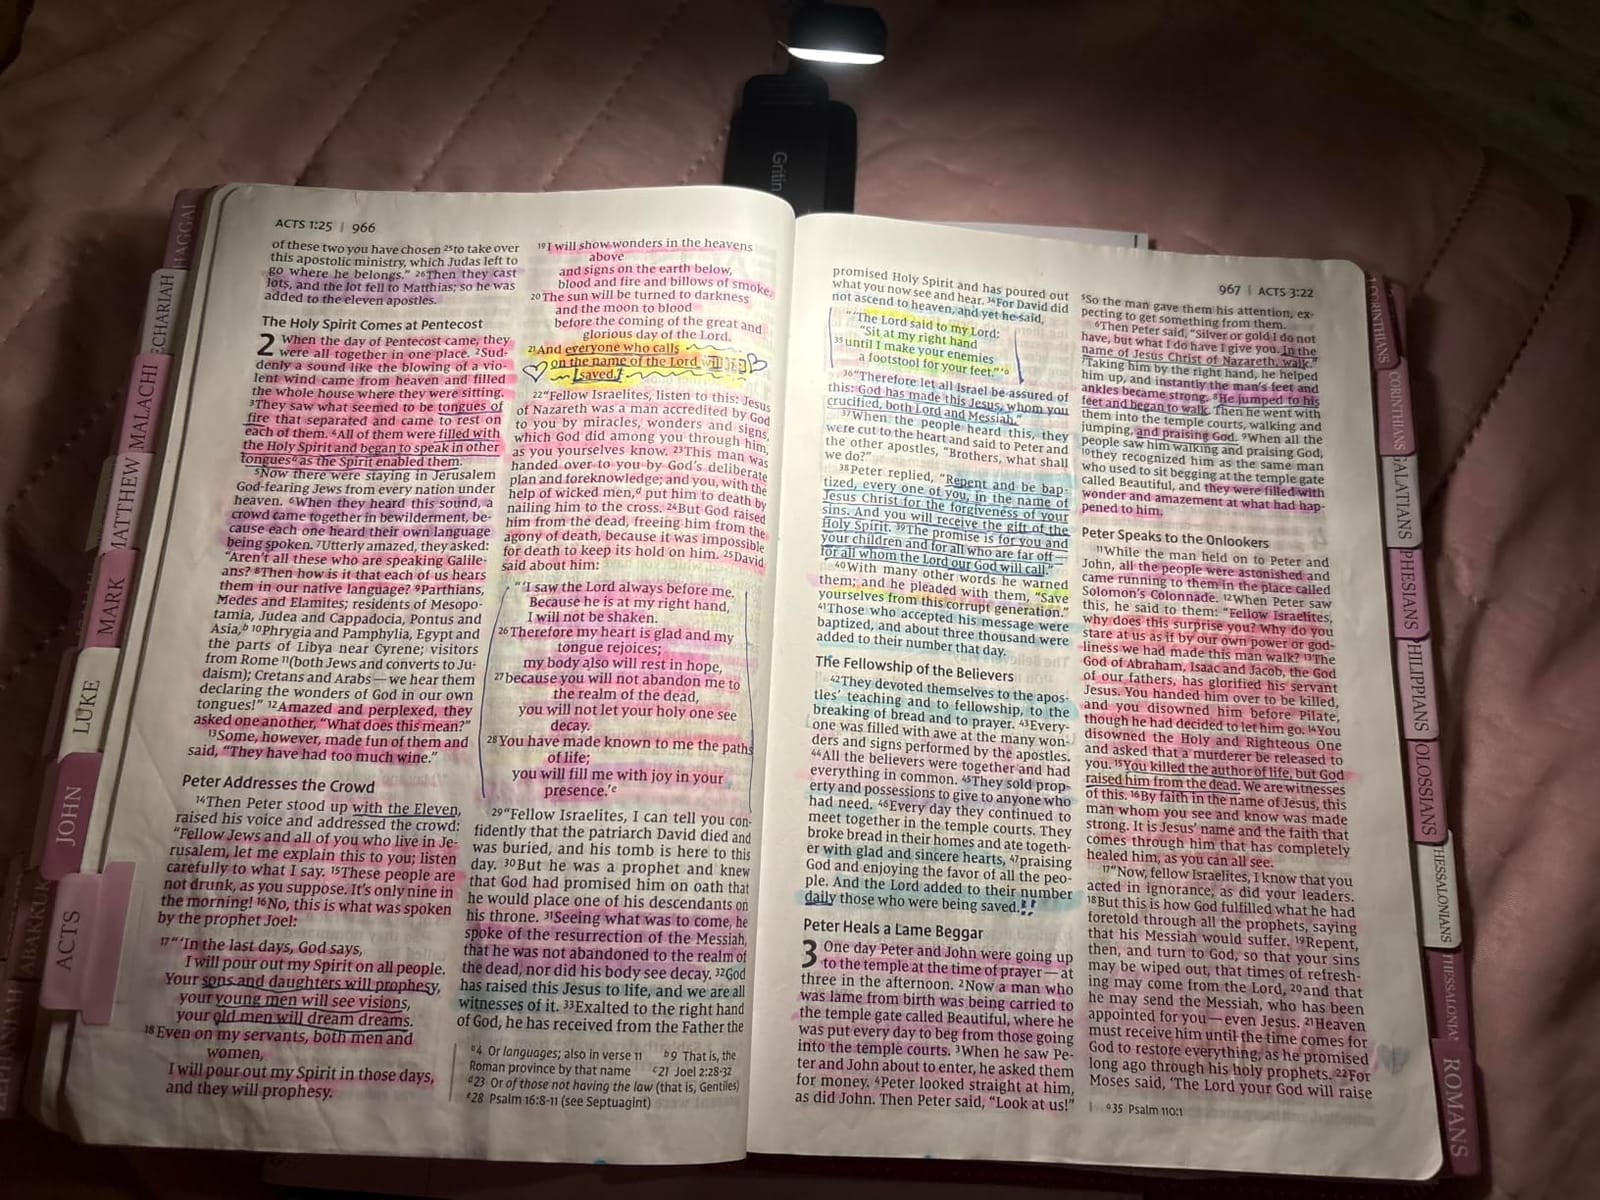 Gritin
ACTS 1:25 | 966
of these two you have chosen ²⁵to take over
this apostolic ministry, which Judas left to
go where he belongs." ²⁶Then they cast
lots, and the lot fell to Matthias; so he was
added to the eleven apostles.
The Holy Spirit Comes at Pentecost
2 When the day of Pentecost came, they
were all together in one place. ²Sud-
denly a sound like the blowing of a vio-
lent wind came from heaven and filled
the whole house where they were sitting.
³They saw what seemed to be tongues of
fire that separated and came to rest on
each of them. ⁴All of them were filled with
the Holy Spirit and began to speak in other
tonguesᵃ as the Spirit enabled them.
⁵Now there were staying in Jerusalem
God-fearing Jews from every nation under
heaven. ⁶When they heard this sound, a
crowd came together in bewilderment, be-
cause each one heard their own language
being spoken. ⁷Utterly amazed, they asked:
"Aren't all these who are speaking Galile-
ans? ⁸Then how is it that each of us hears
them in our native language? ⁹Parthians,
Medes and Elamites; residents of Mesopo-
tamia, Judea and Cappadocia, Pontus and
Asia,ᵇ ¹⁰Phrygia and Pamphylia, Egypt and
the parts of Libya near Cyrene; visitors
from Rome ¹¹(both Jews and converts to Ju-
daism); Cretans and Arabs—we hear them
declaring the wonders of God in our own
tongues!" ¹²Amazed and perplexed, they
asked one another, "What does this mean?"
¹³Some, however, made fun of them and
said, "They have had too much wine."
Peter Addresses the Crowd
¹⁴Then Peter stood up with the Eleven,
raised his voice and addressed the crowd:
"Fellow Jews and all of you who live in Je-
rusalem, let me explain this to you; listen
carefully to what I say. ¹⁵These people are
not drunk, as you suppose. It's only nine in
the morning! ¹⁶No, this is what was spoken
by the prophet Joel:
¹⁷"'In the last days, God says,
I will pour out my Spirit on all people.
Your sons and daughters will prophesy,
your young men will see visions,
your old men will dream dreams.
¹⁸Even on my servants, both men and
women,
I will pour out my Spirit in those days,
and they will prophesy.
¹⁹I will show wonders in the heavens
above
and signs on the earth below,
blood and fire and billows of smoke.
²⁰The sun will be turned to darkness
and the moon to blood
before the coming of the great and
glorious day of the Lord.
²¹And everyone who calls
on the name of the Lord will be
saved.'
²²"Fellow Israelites, listen to this: Jesus
of Nazareth was a man accredited by God
to you by miracles, wonders and signs,
which God did among you through him,
as you yourselves know. ²³This man was
handed over to you by God's deliberate
plan and foreknowledge; and you, with the
help of wicked men,ᵈ put him to death by
nailing him to the cross. ²⁴But God raised
him from the dead, freeing him from the
agony of death, because it was impossible
for death to keep its hold on him. ²⁵David
said about him:
"'I saw the Lord always before me.
Because he is at my right hand,
I will not be shaken.
²⁶Therefore my heart is glad and my
tongue rejoices;
my body also will rest in hope,
²⁷because you will not abandon me to
the realm of the dead,
you will not let your holy one see
decay.
²⁸You have made known to me the paths
of life;
you will fill me with joy in your
presence.'ᵉ
²⁹"Fellow Israelites, I can tell you con-
fidently that the patriarch David died and
was buried, and his tomb is here to this
day. ³⁰But he was a prophet and knew
that God had promised him on oath that
he would place one of his descendants on
his throne. ³¹Seeing what was to come, he
spoke of the resurrection of the Messiah,
that he was not abandoned to the realm of
the dead, nor did his body see decay. ³²God
has raised this Jesus to life, and we are all
witnesses of it. ³³Exalted to the right hand
of God, he has received from the Father the
ᵃ4 Or languages; also in verse 11 ᵇ9 That is, the
Roman province by that name ᶜ21 Joel 2:28-32
ᵈ23 Or of those not having the law (that is, Gentiles)
ᵉ28 Psalm 16:8-11 (see Septuagint)
967 | ACTS 3:22
promised Holy Spirit and has poured out
what you now see and hear. ³⁴For David did
not ascend to heaven, and yet he said,
"'The Lord said to my Lord:
"Sit at my right hand
³⁵until I make your enemies
a footstool for your feet."'ᵃ
³⁶"Therefore let all Israel be assured of
this: God has made this Jesus, whom you
crucified, both Lord and Messiah."
³⁷When the people heard this, they
were cut to the heart and said to Peter and
the other apostles, "Brothers, what shall
we do?"
³⁸Peter replied, "Repent and be bap-
tized, every one of you, in the name of
Jesus Christ for the forgiveness of your
sins. And you will receive the gift of the
Holy Spirit. ³⁹The promise is for you and
your children and for all who are far off—
for all whom the Lord our God will call."
⁴⁰With many other words he warned
them; and he pleaded with them, "Save
yourselves from this corrupt generation."
⁴¹Those who accepted his message were
baptized, and about three thousand were
added to their number that day.
The Fellowship of the Believers
⁴²They devoted themselves to the apos-
tles' teaching and to fellowship, to the
breaking of bread and to prayer. ⁴³Every-
one was filled with awe at the many won-
ders and signs performed by the apostles.
⁴⁴All the believers were together and had
everything in common. ⁴⁵They sold prop-
erty and possessions to give to anyone who
had need. ⁴⁶Every day they continued to
meet together in the temple courts. They
broke bread in their homes and ate togeth-
er with glad and sincere hearts, ⁴⁷praising
God and enjoying the favor of all the peo-
ple. And the Lord added to their number
daily those who were being saved.!!
Peter Heals a Lame Beggar
3 One day Peter and John were going up
to the temple at the time of prayer—at
three in the afternoon. ²Now a man who
was lame from birth was being carried to
the temple gate called Beautiful, where he
was put every day to beg from those going
into the temple courts. ³When he saw Pe-
ter and John about to enter, he asked them
for money. ⁴Peter looked straight at him,
as did John. Then Peter said, "Look at us!"
⁵So the man gave them his attention, ex-
pecting to get something from them.
⁶Then Peter said, "Silver or gold I do not
have, but what I do have I give you. In the
name of Jesus Christ of Nazareth, walk."
⁷Taking him by the right hand, he helped
him up, and instantly the man's feet and
ankles became strong. ⁸He jumped to his
feet and began to walk. Then he went with
them into the temple courts, walking and
jumping, and praising God. ⁹When all the
people saw him walking and praising God,
¹⁰they recognized him as the same man
who used to sit begging at the temple gate
called Beautiful, and they were filled with
wonder and amazement at what had hap-
pened to him.
Peter Speaks to the Onlookers
¹¹While the man held on to Peter and
John, all the people were astonished and
came running to them in the place called
Solomon's Colonnade. ¹²When Peter saw
this, he said to them: "Fellow Israelites,
why does this surprise you? Why do you
stare at us as if by our own power or god-
liness we had made this man walk? ¹³The
God of Abraham, Isaac and Jacob, the God
of our fathers, has glorified his servant
Jesus. You handed him over to be killed,
and you disowned him before Pilate,
though he had decided to let him go. ¹⁴You
disowned the Holy and Righteous One
and asked that a murderer be released to
you. ¹⁵You killed the author of life, but God
raised him from the dead. We are witnesses
of this. ¹⁶By faith in the name of Jesus, this
man whom you see and know was made
strong. It is Jesus' name and the faith that
comes through him that has completely
healed him, as you can all see.
¹⁷"Now, fellow Israelites, I know that you
acted in ignorance, as did your leaders.
¹⁸But this is how God fulfilled what he had
foretold through all the prophets, saying
that his Messiah would suffer. ¹⁹Repent,
then, and turn to God, so that your sins
may be wiped out, that times of refresh-
ing may come from the Lord, ²⁰and that
he may send the Messiah, who has been
appointed for you—even Jesus. ²¹Heaven
must receive him until the time comes for
God to restore everything, as he promised
long ago through his holy prophets. ²²For
Moses said, 'The Lord your God will raise
ᵃ35 Psalm 110:1
HAGGAI
ECHARIAH
MALACHI
MATTHEW
MARK
LUKE
JOHN
ACTS
ABAKKUK
ZEPHANIAH
CORINTHIANS
CORINTHIANS
GALATIANS
PHESIANS
PHILIPPIANS
OLOSSIANS
THESSALONIANS
THESSALONIA
ROMANS